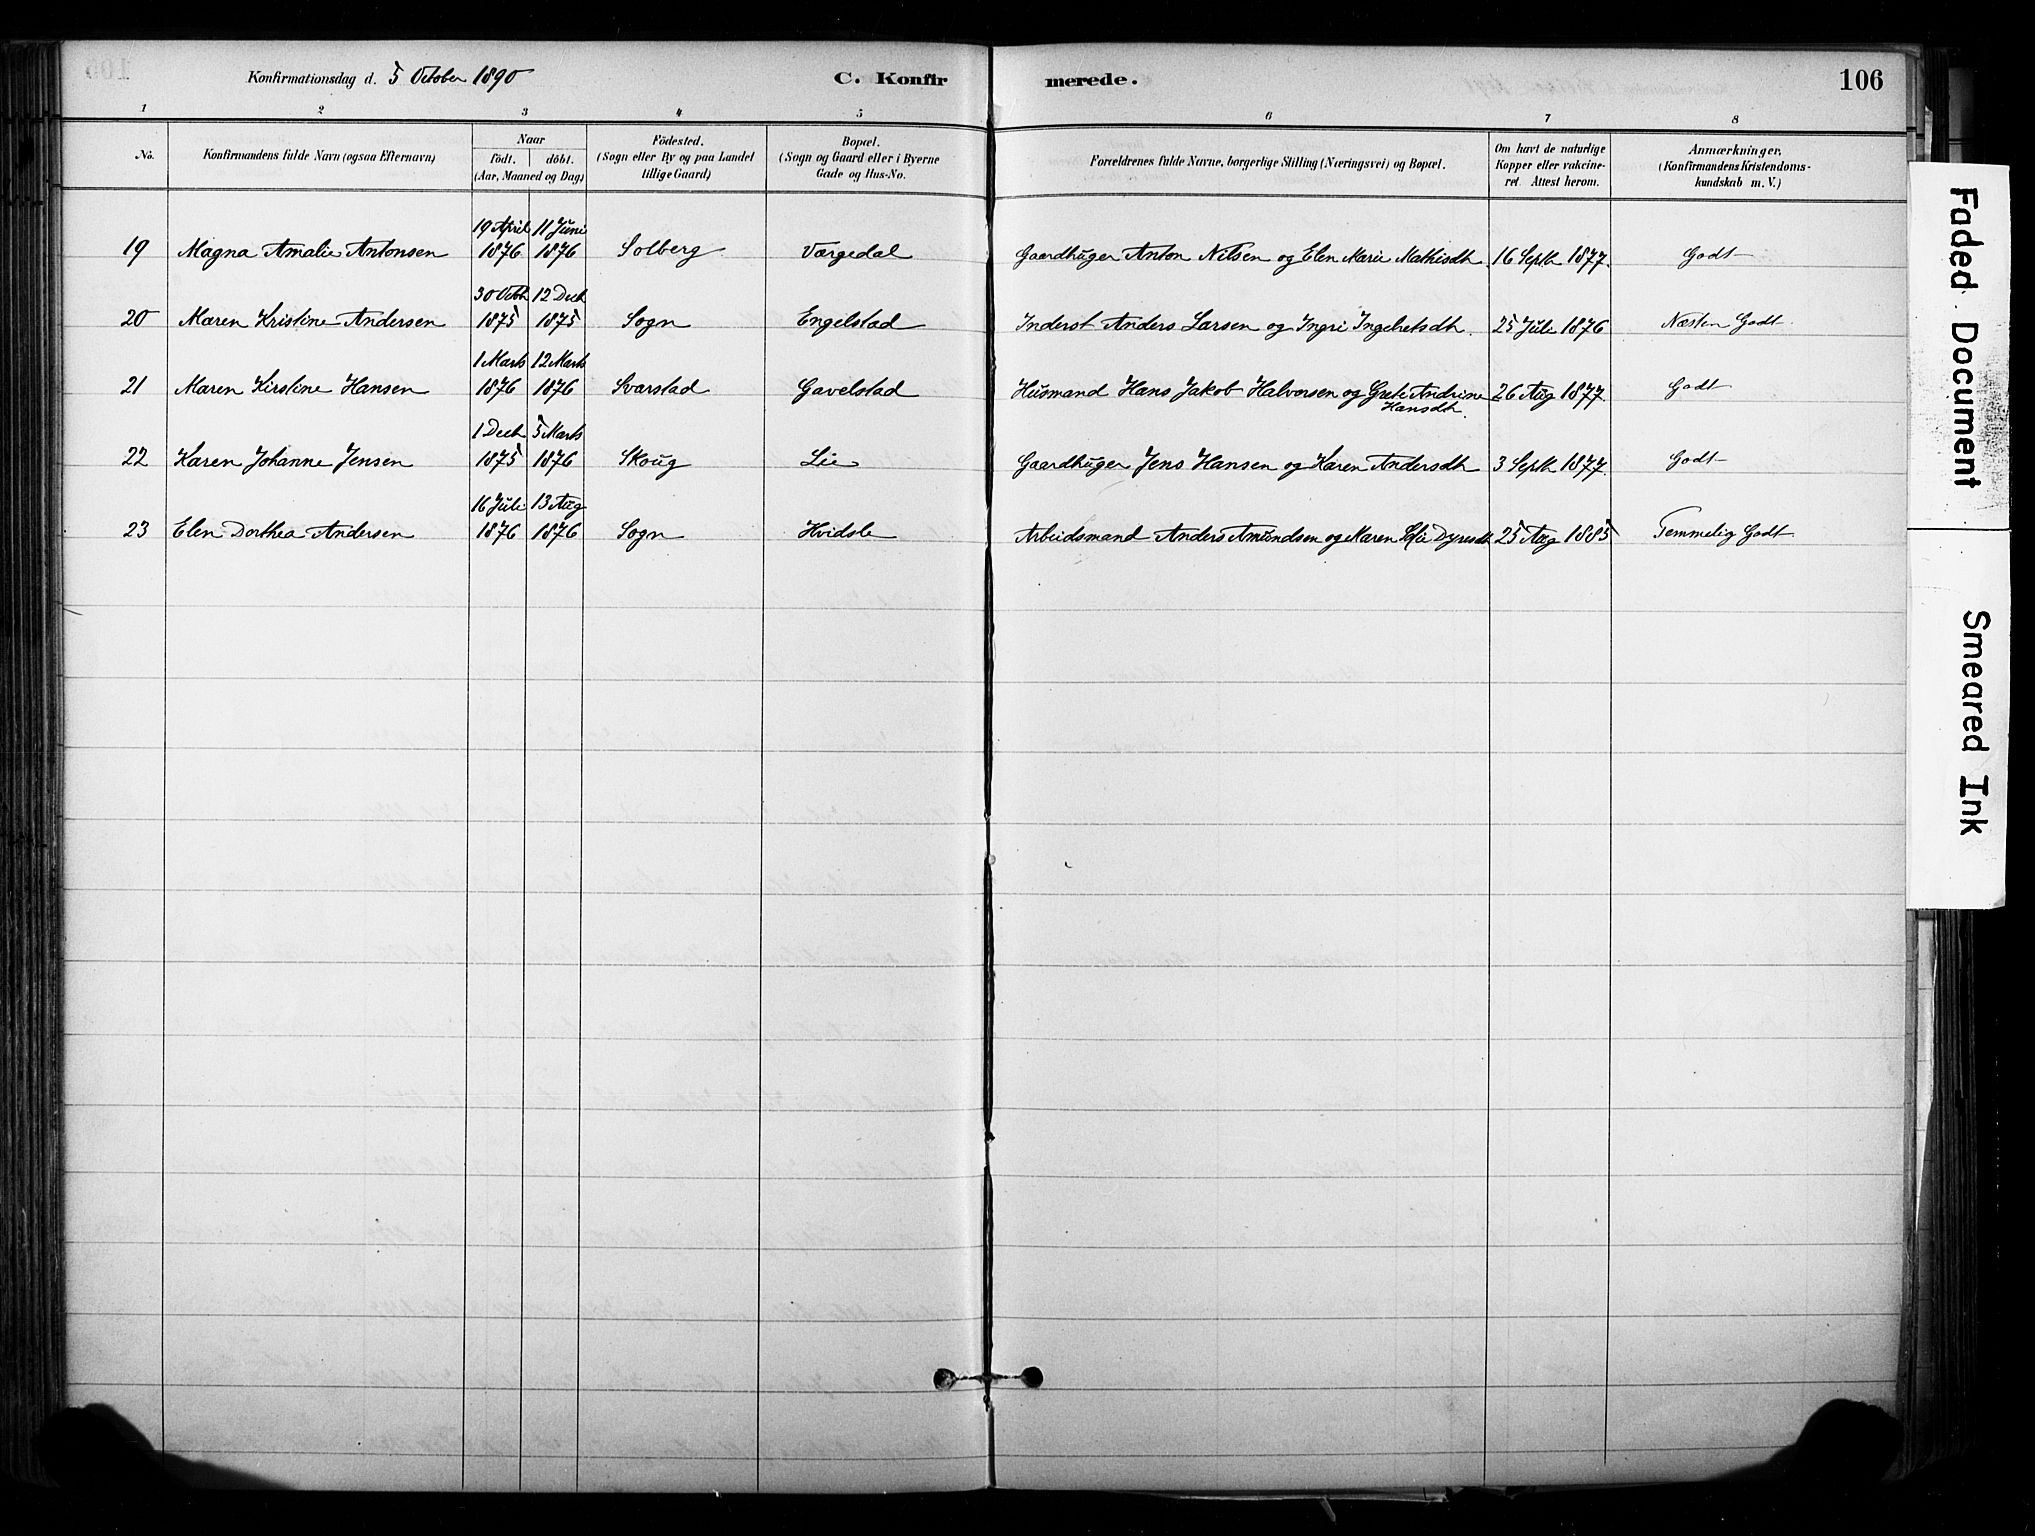 Konfirmationsdag d. 5 October 1890 C. Konfirmerede. 106
1 2 3 4 5 6 7 8
No. Konfirmandens fulde Navn (ogsaa Efternavn) Naar födt. döbt. (Aar, Maaned og Dag) Födested. (Sogn eller By og paa Landet tillige Gaard) Bopæl. (Sogn og Gaard eller i Byerne Gade og Hus-No. Forældrenes fulde Navne, borgerlige Stilling (Næringsvei) og Bopæl. Om havt de naturlige Kopper eller vakcineret. Attest herom. Anmærkninger, (Konfirmandens Kristendomskundskab m. V.)
19 Magna Amalie Antonsen 19 April 1876 11 Juni 1876 Solberg Værgedal Gaardbuger Anton Nilsen og Elen Marie Mathisdtr. 16 Septbr 1877. Godt
20 Maren Kristine Andersen 30 Octbr 1875 12 Decbr 1875 Sogn Engelstad Inderst Anders Larsen og Ingri Ingebretsdtr. 25 Juli 1876 Næsten Godt.
21 Maren Kirstine Hansen 1 Marts 1876 12 Marts 1876 Svarstad Gavelstad Husmand Hans Jakob Halvorsen og Grete Andrine Hansdtr. 26 Aug 1877. Godt
22 Karen Johanne Jensen 1 Decbr 1875 5 Marts 1876 Skoug Lie Gaardbuger Jens Hansen og Karen Andersdtr 3 Septbr 1877. Godt
23 Elen Dorthea Andersen 16 Juli 1876 13 Aug 1876 Sogn Hvidste Arbeidsmand Anders Amundsen og Maren Dyresdtr 25 Aug 1885 Temmelig Godt
Faded Document
Smeared Ink